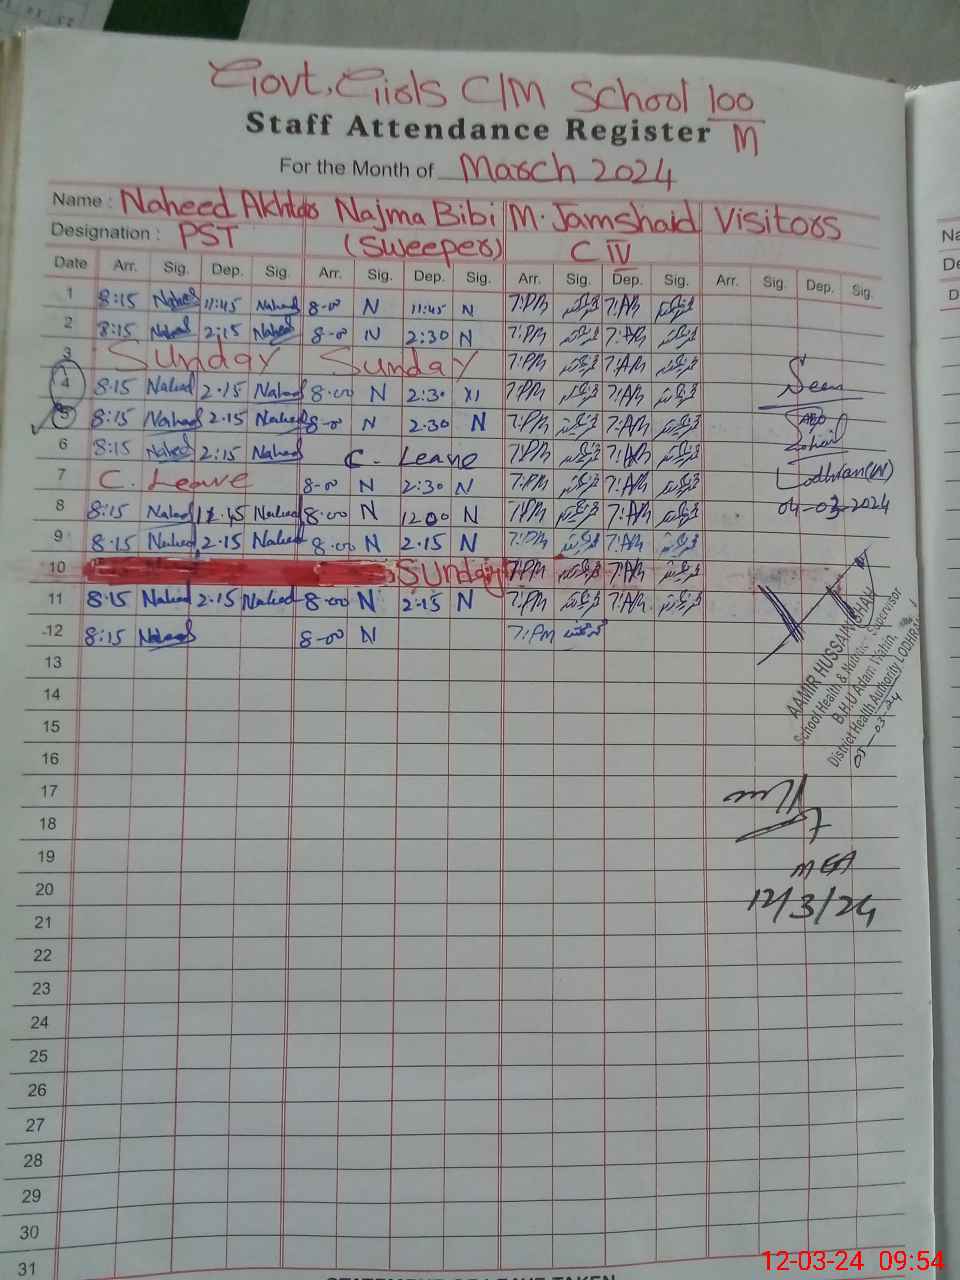 Govt. Girls C/M School 100/M
Staff Attendance Register
For the Month of March 2024
Name : Naheed Akhtar Najma Bibi M. Jamshaid Visitors
Designation : PST (Sweeper) C IV
Date Arr. Sig. Dep. Sig. Arr. Sig. Dep. Sig. Arr. Sig. Dep. Sig. Arr. Sig. Dep. Sig.
1 8:15 Naheed 11:45 Naheed 8-00 N 11:45 N 7:PM 7:AM
2 8:15 Naheed 2:15 Naheed 8-00 N 2:30 N 7:PM 7:AM
3 Sunday Sunday 7:PM 7:AM
4 8:15 Naheed 2.15 Naheed 8.00 N 2:30 7:PM 7:AM Seen
5 8:15 Naheed 2.15 Naheed 8-00 N 2.30 N 7:PM 7:AM
6 8:15 Naheed 2:15 Naheed C. Leave 7:PM 7:AM
7 C. Leave 8-00 N 2:30 N 7:PM 7:AM Lodhran
8 8:15 Naheed Naheed 8.00 N 1200 N 7:PM 7:AM 04-03-2024
9 8.15 Naheed 2.15 Naheed 8.00 N 2.15 N 7:PM 7:AM
10 Sunday 7:PM 7:AM
11 8.15 Naheed 2.15 Naheed 8-00 N 2:15 N 7:PM 7:AM
12 8:15 Naheed 8-00 N 7:PM
AAMIR HUSSAIN SHAH
School Health & Supervisor
B.H.U Adam Wahin,
District Health Authority LODHRAN
05-03-24
13
14
15
16
17
18
19
MEA
20
12/3/24
21
22
23
24
25
26
27
28
29
30
31
STATEMENT OF LEAVE TAKEN
12-03-24 09:54